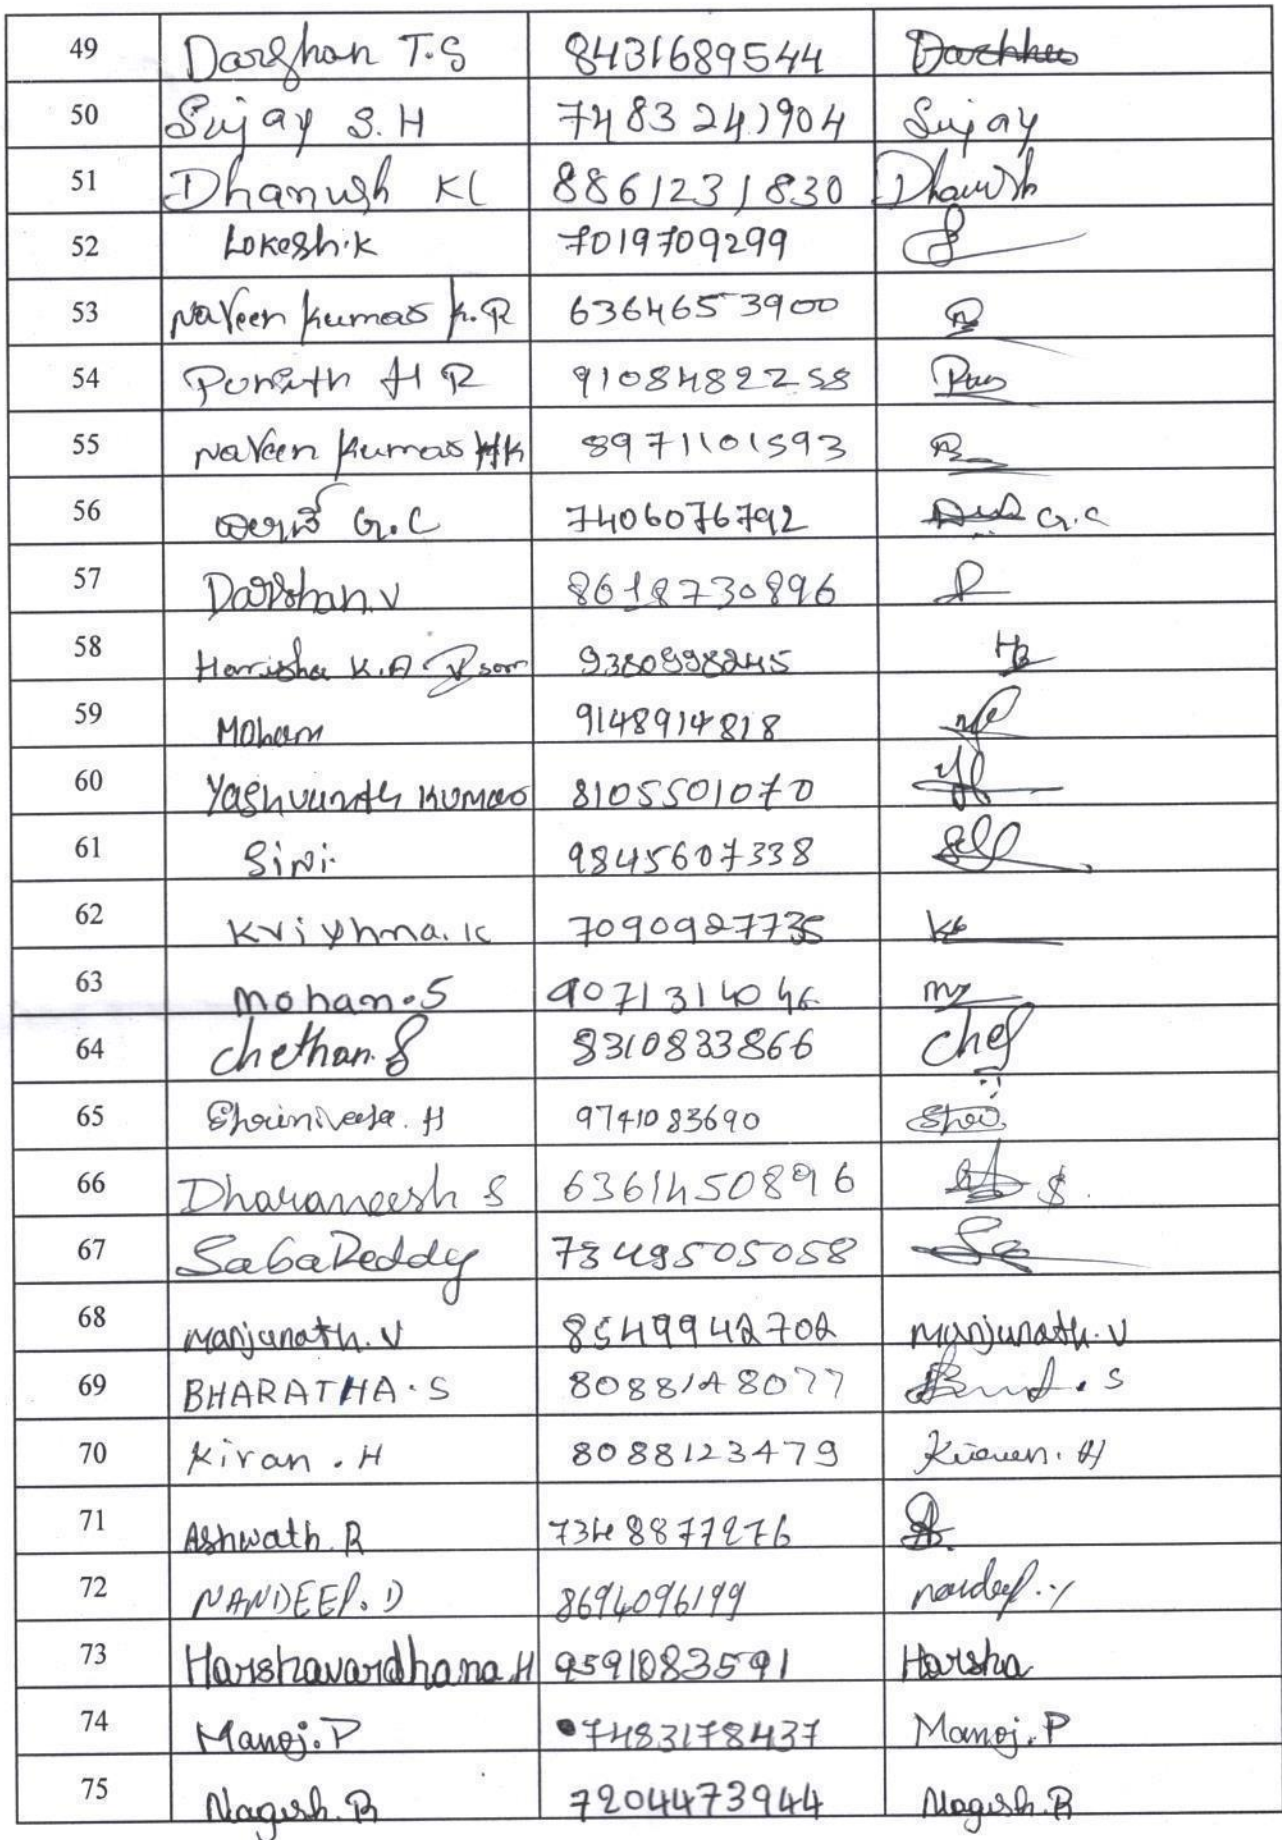 49 Darshan T.S 8431689544
50 Sujay S.H 7483241904 Sujay
51 Dhanush KL 8861231830 Dhanush
52 Lokesh.K 7019709299
53 Naveen Kumar K.R 6364653900
54 Punith H R 9108482258
55 Naveen Kumar HK 8971101593
56 G.C 7406076792 G.C
57 Darshan.V 8618730896
58 Harisha K.A 9380998245
59 Mohan 9148914818
60 Yashvanth Kumar 8105501070
61 Siri 9845607338
62 Krishna.K 7090927735
63 Mohan.S 9071314046
64 Chethan.S 8310833866
65 Shrinivasa.H 9741083690
66 Dharaneesh S 6361450896 S.
67 SabaReddy 7349505058
68 Manjunath.V 8549942702 Manjunath.V
69 BHARATHA.S 8088148077 S
70 Kiran.H 8088123479 Kiran.H
71 Ashwath.R 7348877276
72 NANDEEP.D 8694096199
73 Harshavardhana.H 9591083591 Harsha
74 Manoj.P 7483178437 Manoj.P
75 Nagesh.R 7204473944 Nagesh.R